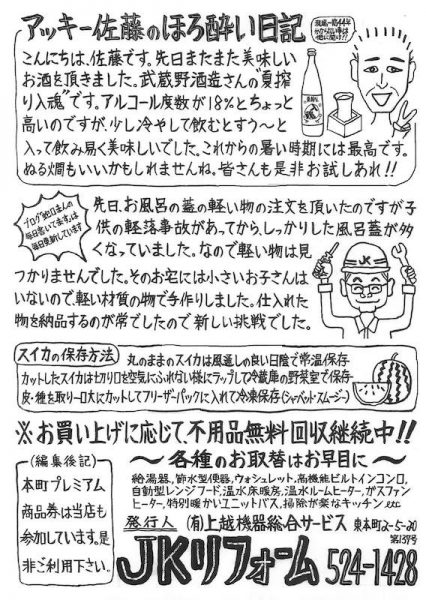 アッキー佐藤のほろ酔い日記
こんにちは、佐藤です。先日またまた美味しい
お酒を頂きました。武蔵野酒造さんの"夏搾
り入魂"です。アルコール度数が18%とちょっと
高いのですが、少し冷やして飲むとすう〜と
入って飲み易く美味しいでした。これからの暑い時期には最高です。
ぬる燗もいいかもしれませんね。皆さんも是非お試しあれ!!
毎日書いてます。
毎日更新しています
先日、お風呂の蓋の軽い物の注文を頂いたのですが子
供の転落事故があってから、しっかりした風呂蓋が多
くなっていました。なので軽い物は見
つかりませんでした。そのお宅には小さいお子さんは
いないので、軽い材質の物で手作りしました。仕入れた
物を納品するのが常でしたので新しい挑戦でした。
JK
スイカの保存方法
丸のままのスイカは風通しの良い日陰で常温保存
カットしたスイカは切り口を空気にふれない様にラップして冷蔵庫の野菜室で保存
皮・種を取り一口大にカットしてフリーザーパックに入れて冷凍保存(シャーベット・スムージー)
※お買い上げに応じて、不用品無料回収継続中!!
(編集後記)
本町プレミアム
商品券は当店も
参加しています。是
非ご利用下さい。
〜各種のお取替はお早目に〜
給湯器、節水型便器、ウォシュレット、高機能ビルトインコンロ、
自動型レンジフード、温水床暖房、温水ルームヒーター、ガスファン
ヒーター、特別暖かいユニットバス、掃除が楽なキッチン etc
発行人 (有)上越機器総合サービス 東本町2-5-20
第137号
JKリフォーム 524-1428